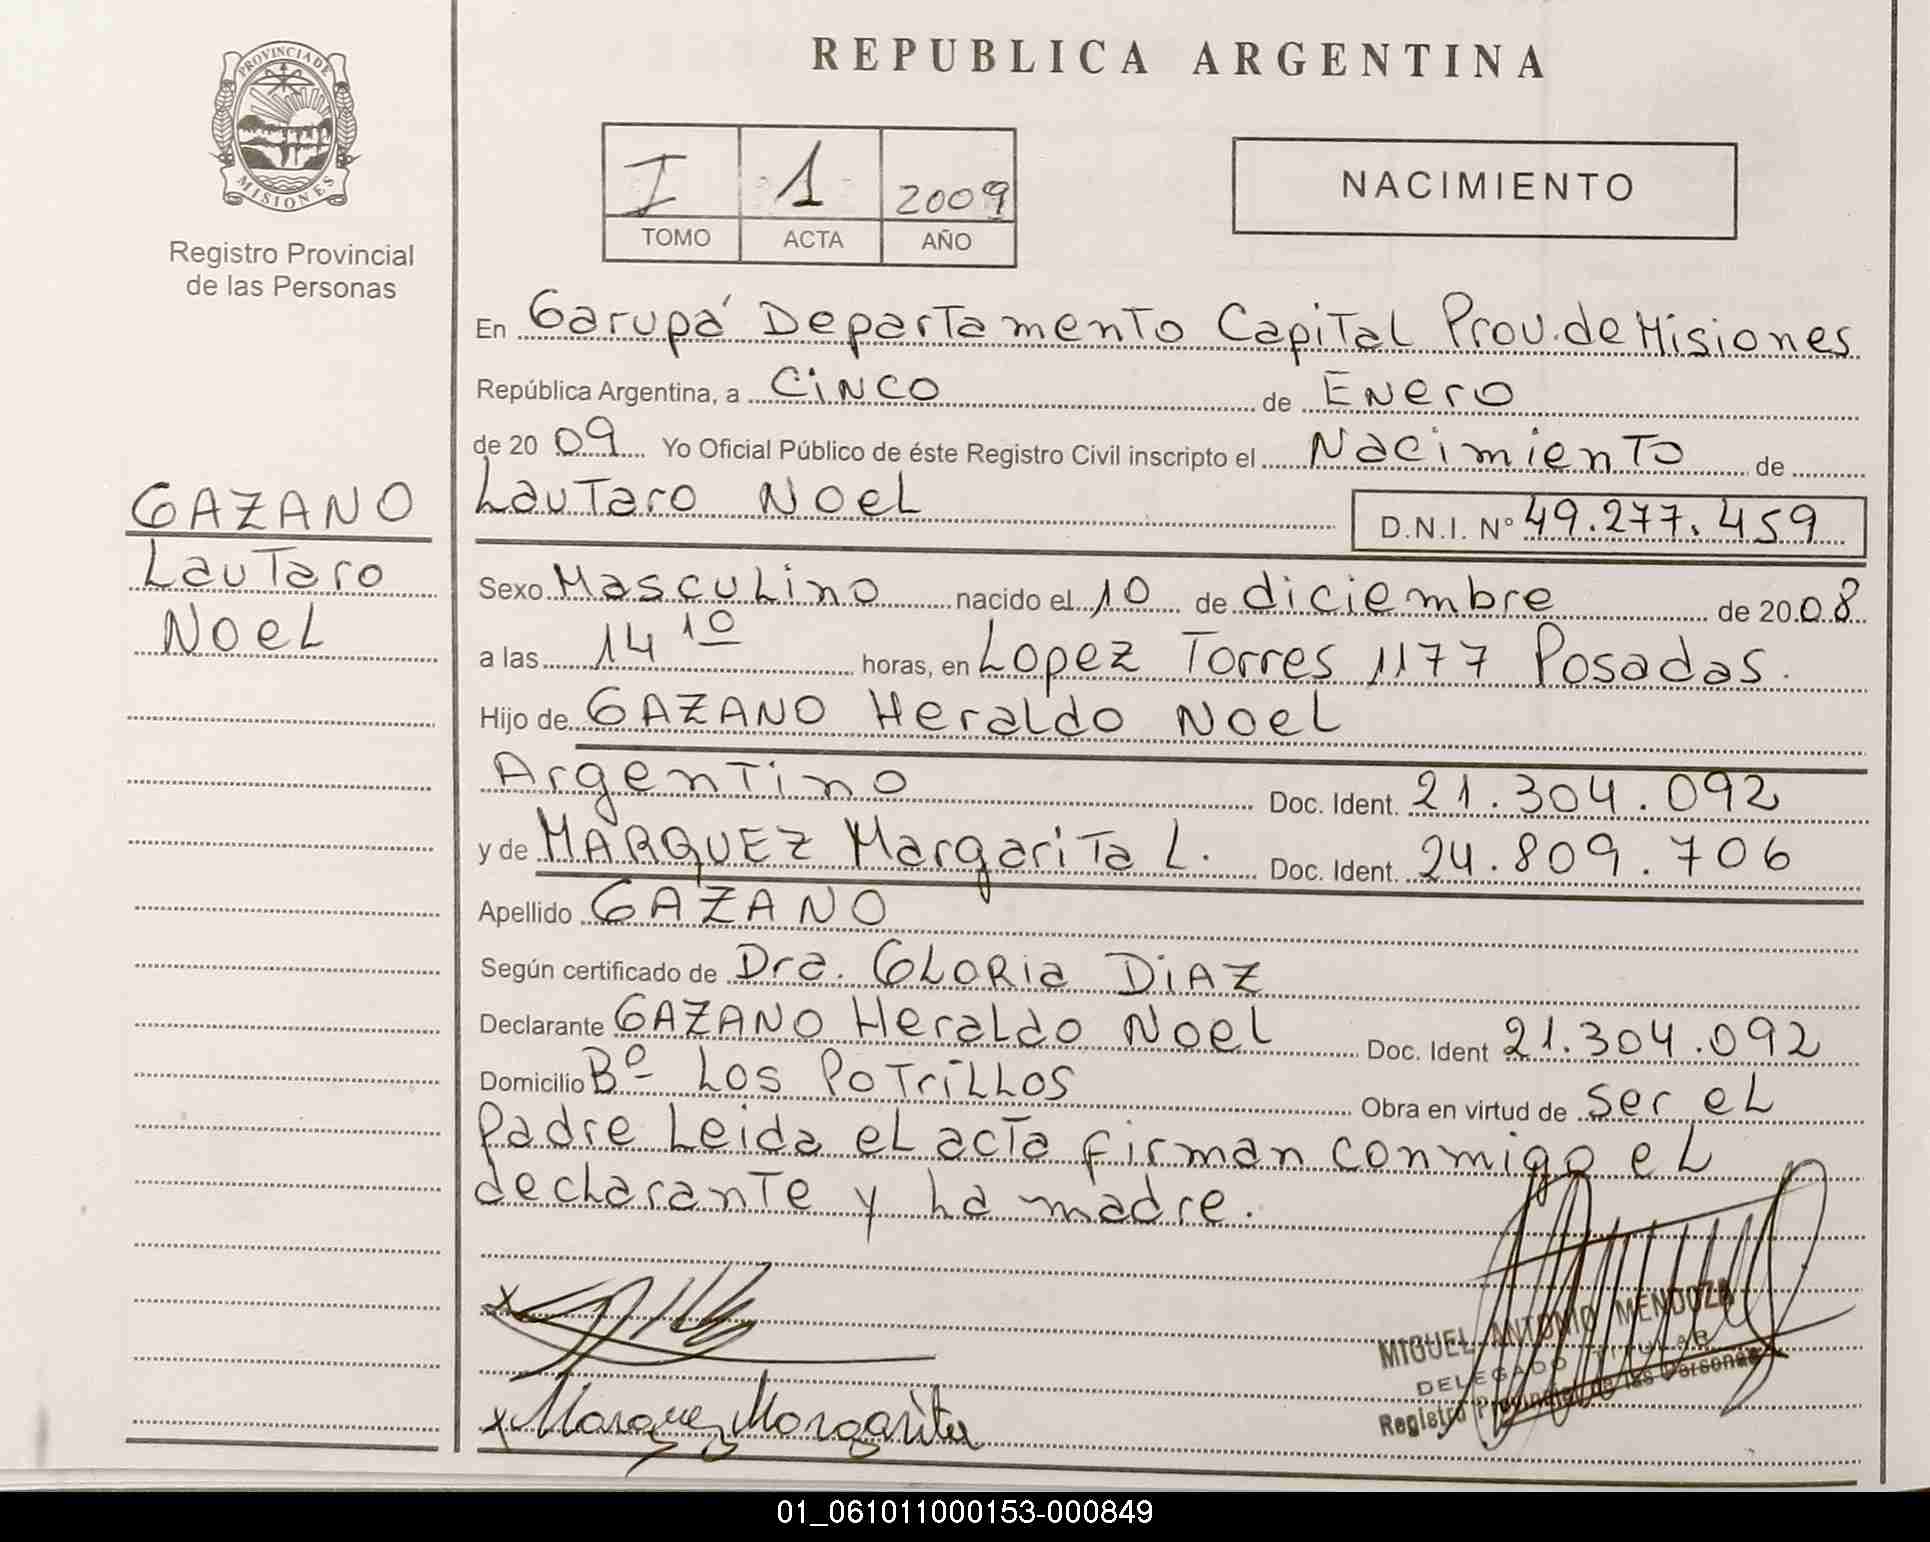 PROVINCIA DE
MISIONES
Registro Provincial
de las Personas
GAZANO
Lautaro
Noel
REPUBLICA ARGENTINA
I 1 2009
TOMO ACTA AÑO
NACIMIENTO
En Garupá Departamento Capital Prov. de Misiones
República Argentina, a Cinco de Enero
de 20 09 Yo Oficial Público de éste Registro Civil inscripto el Nacimiento de
Lautaro Noel D.N.I. Nº 49.277.459
Sexo Masculino nacido el 10 de diciembre de 20 08
a las 14 10 horas, en Lopez Torres 1177 Posadas.
Hijo de GAZANO Heraldo Noel
Argentino Doc. Ident. 21.304.092
y de MARQUEZ Margarita L. Doc. Ident. 24.809.706
Apellido GAZANO
Según certificado de Dra. GLORia DiAZ
Declarante GAZANO Heraldo Noel Doc. Ident 21.304.092
Domicilio Bº Los Potrillos Obra en virtud de ser el
padre Leida el acta firman conmigo el
declarante y la madre.
MIGUEL ANTONIO MENDOZA
DELEGADO TITULAR
Registro Provincial de las Personas
x Marquez Margarita
01_061011000153-000849